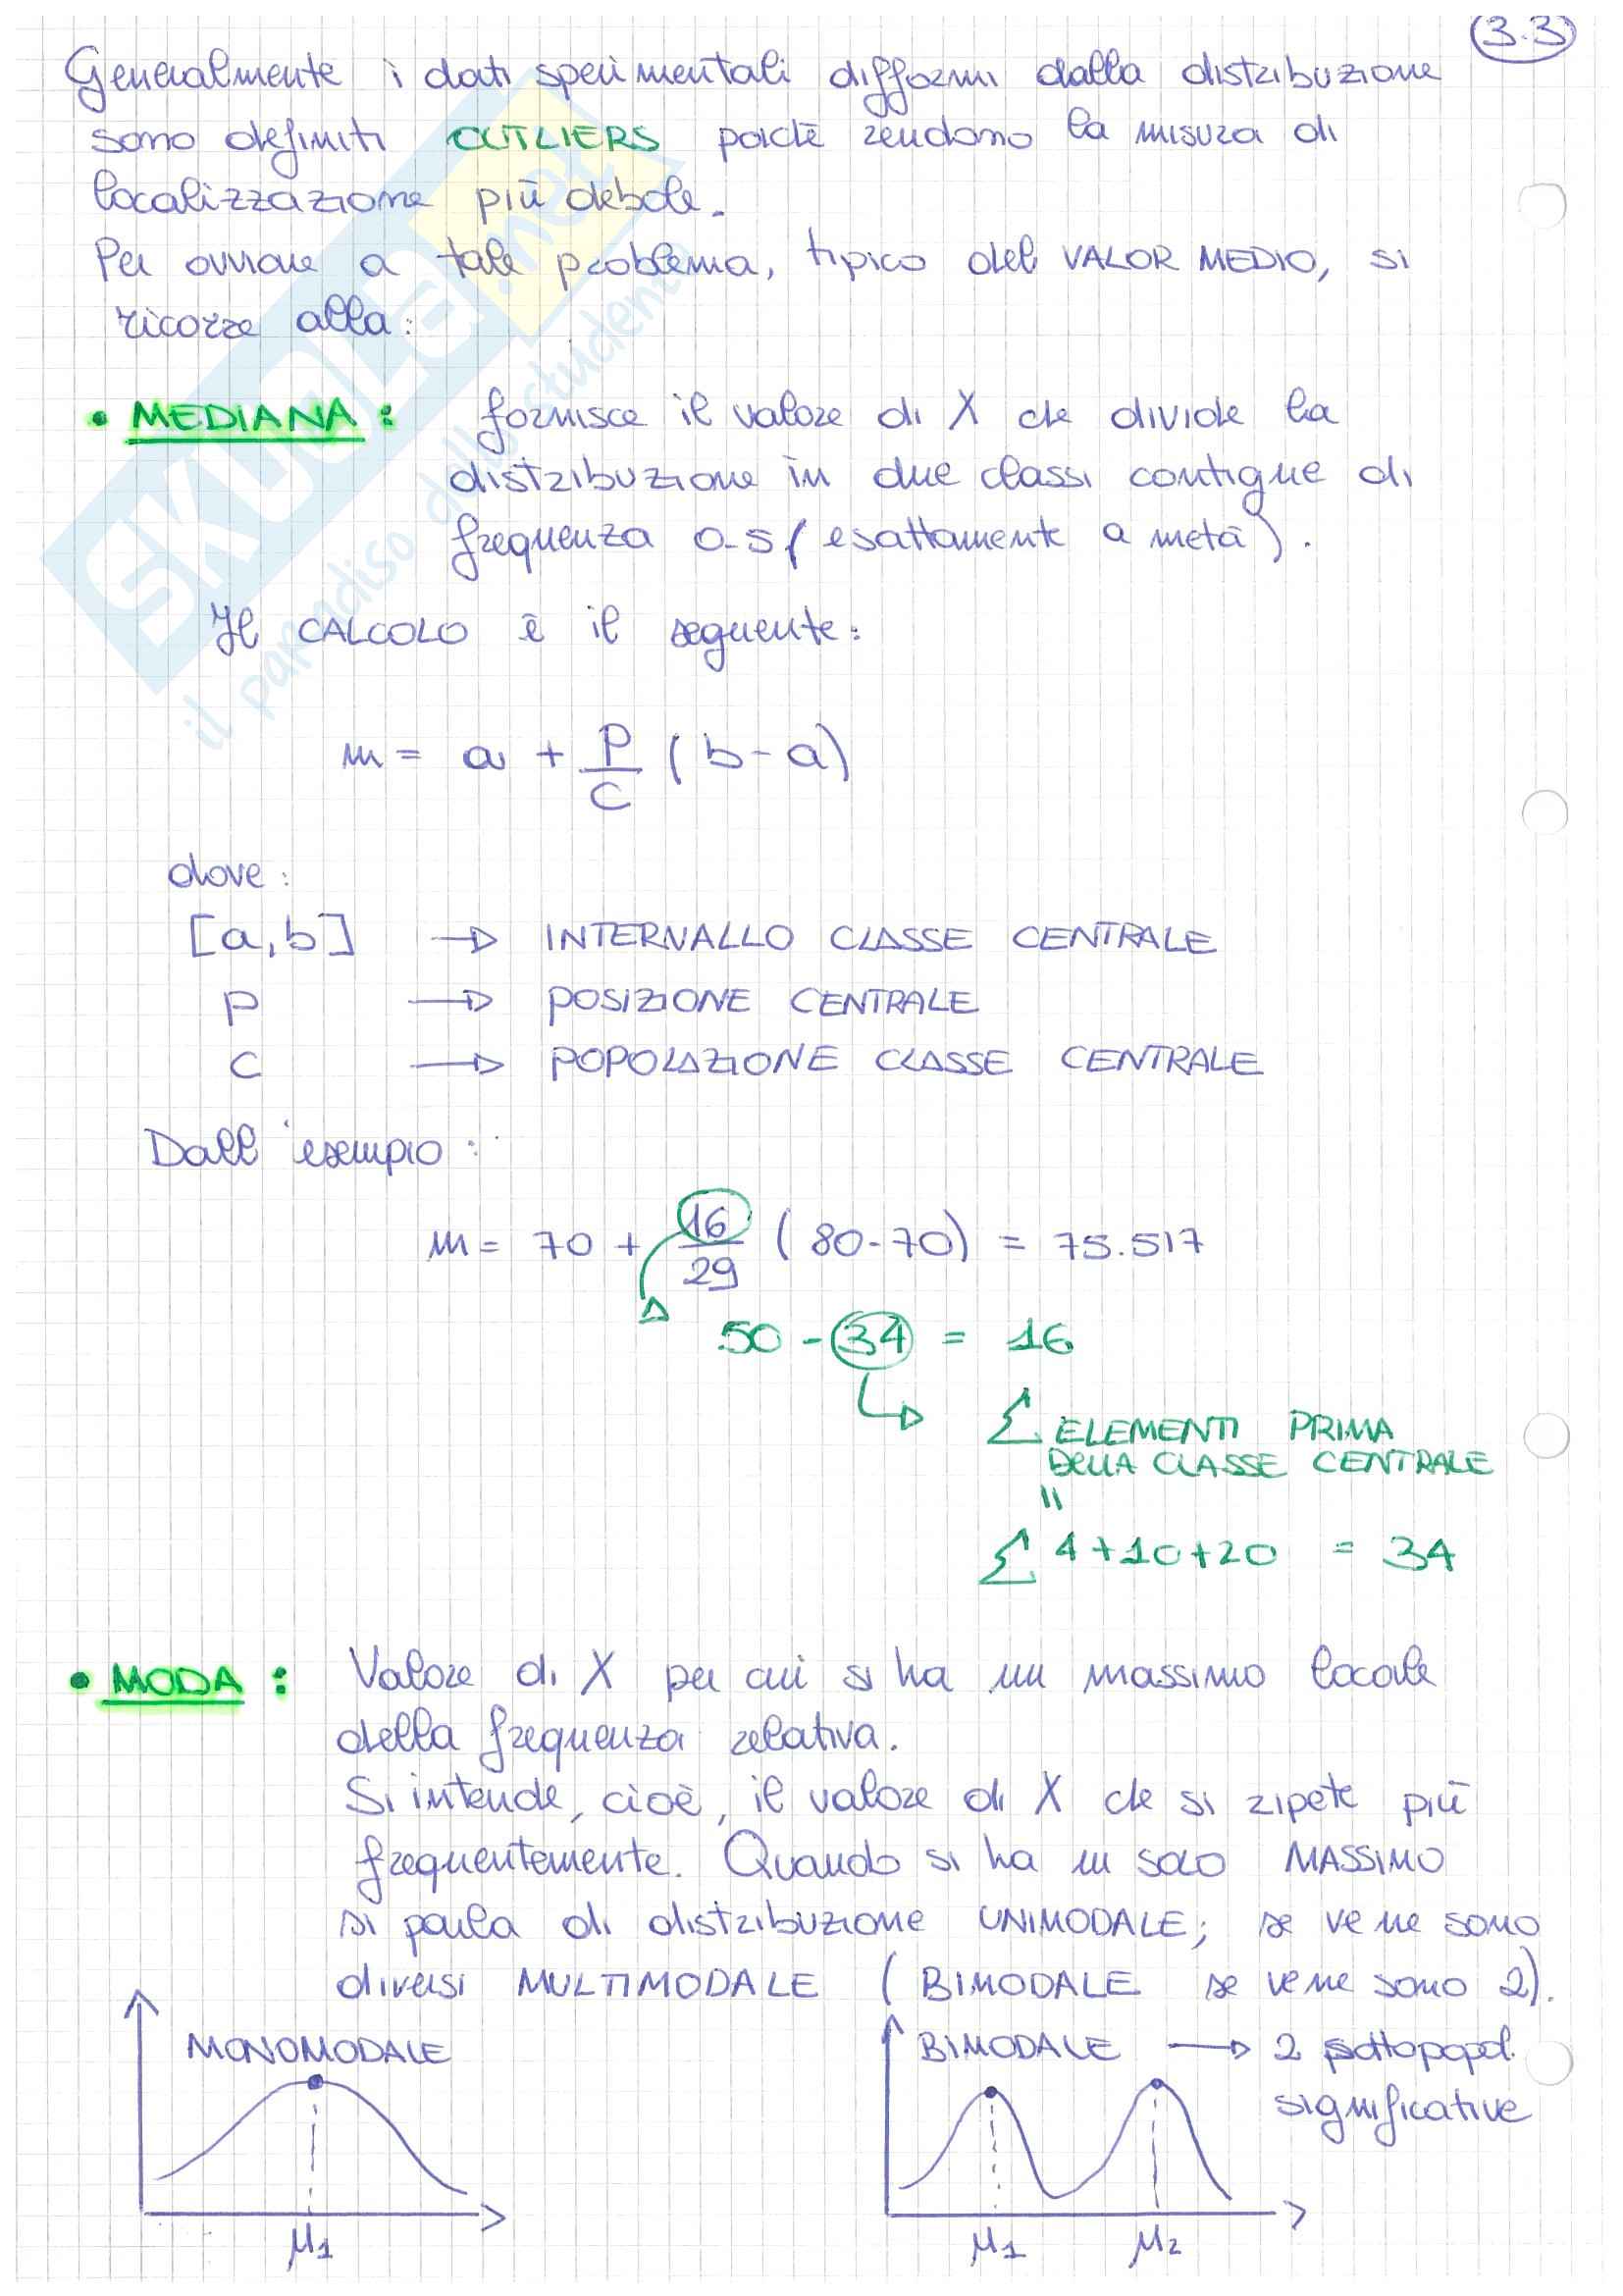 3.3
Generalmente i dati sperimentali difformi dalla distribuzione
sono definiti OUTLIERS poiché rendono la misura di
localizzazione più debole.
Per ovviare a tale problema, tipico del VALOR MEDIO, si
ricorre alla:
• MEDIANA : fornisce il valore di X che divide la
distribuzione in due classi contigue di
frequenza 0.5 (esattamente a metà).
Il CALCOLO è il seguente:
m = a + P/C (b-a)
dove:
[a,b] → INTERVALLO CLASSE CENTRALE
P → POSIZIONE CENTRALE
C → POPOLAZIONE CLASSE CENTRALE
Dall'esempio:
m = 70 + 16/29 (80-70) = 75.517
50 - 34 = 16
Σ ELEMENTI PRIMA
DELLA CLASSE CENTRALE
"
Σ 4+10+20 = 34
• MODA : Valore di X per cui si ha un massimo locale
della frequenza relativa.
Si intende, cioè, il valore di X che si ripete più
frequentemente. Quando si ha un solo MASSIMO
si parla di distribuzione UNIMODALE; se ve ne sono
diversi MULTIMODALE (BIMODALE se ve ne sono 2).
MONOMODALE
μ1
BIMODALE → 2 sottopopol.
significative
μ1 μ2
SKUOLA.net
il paradiso dello studente